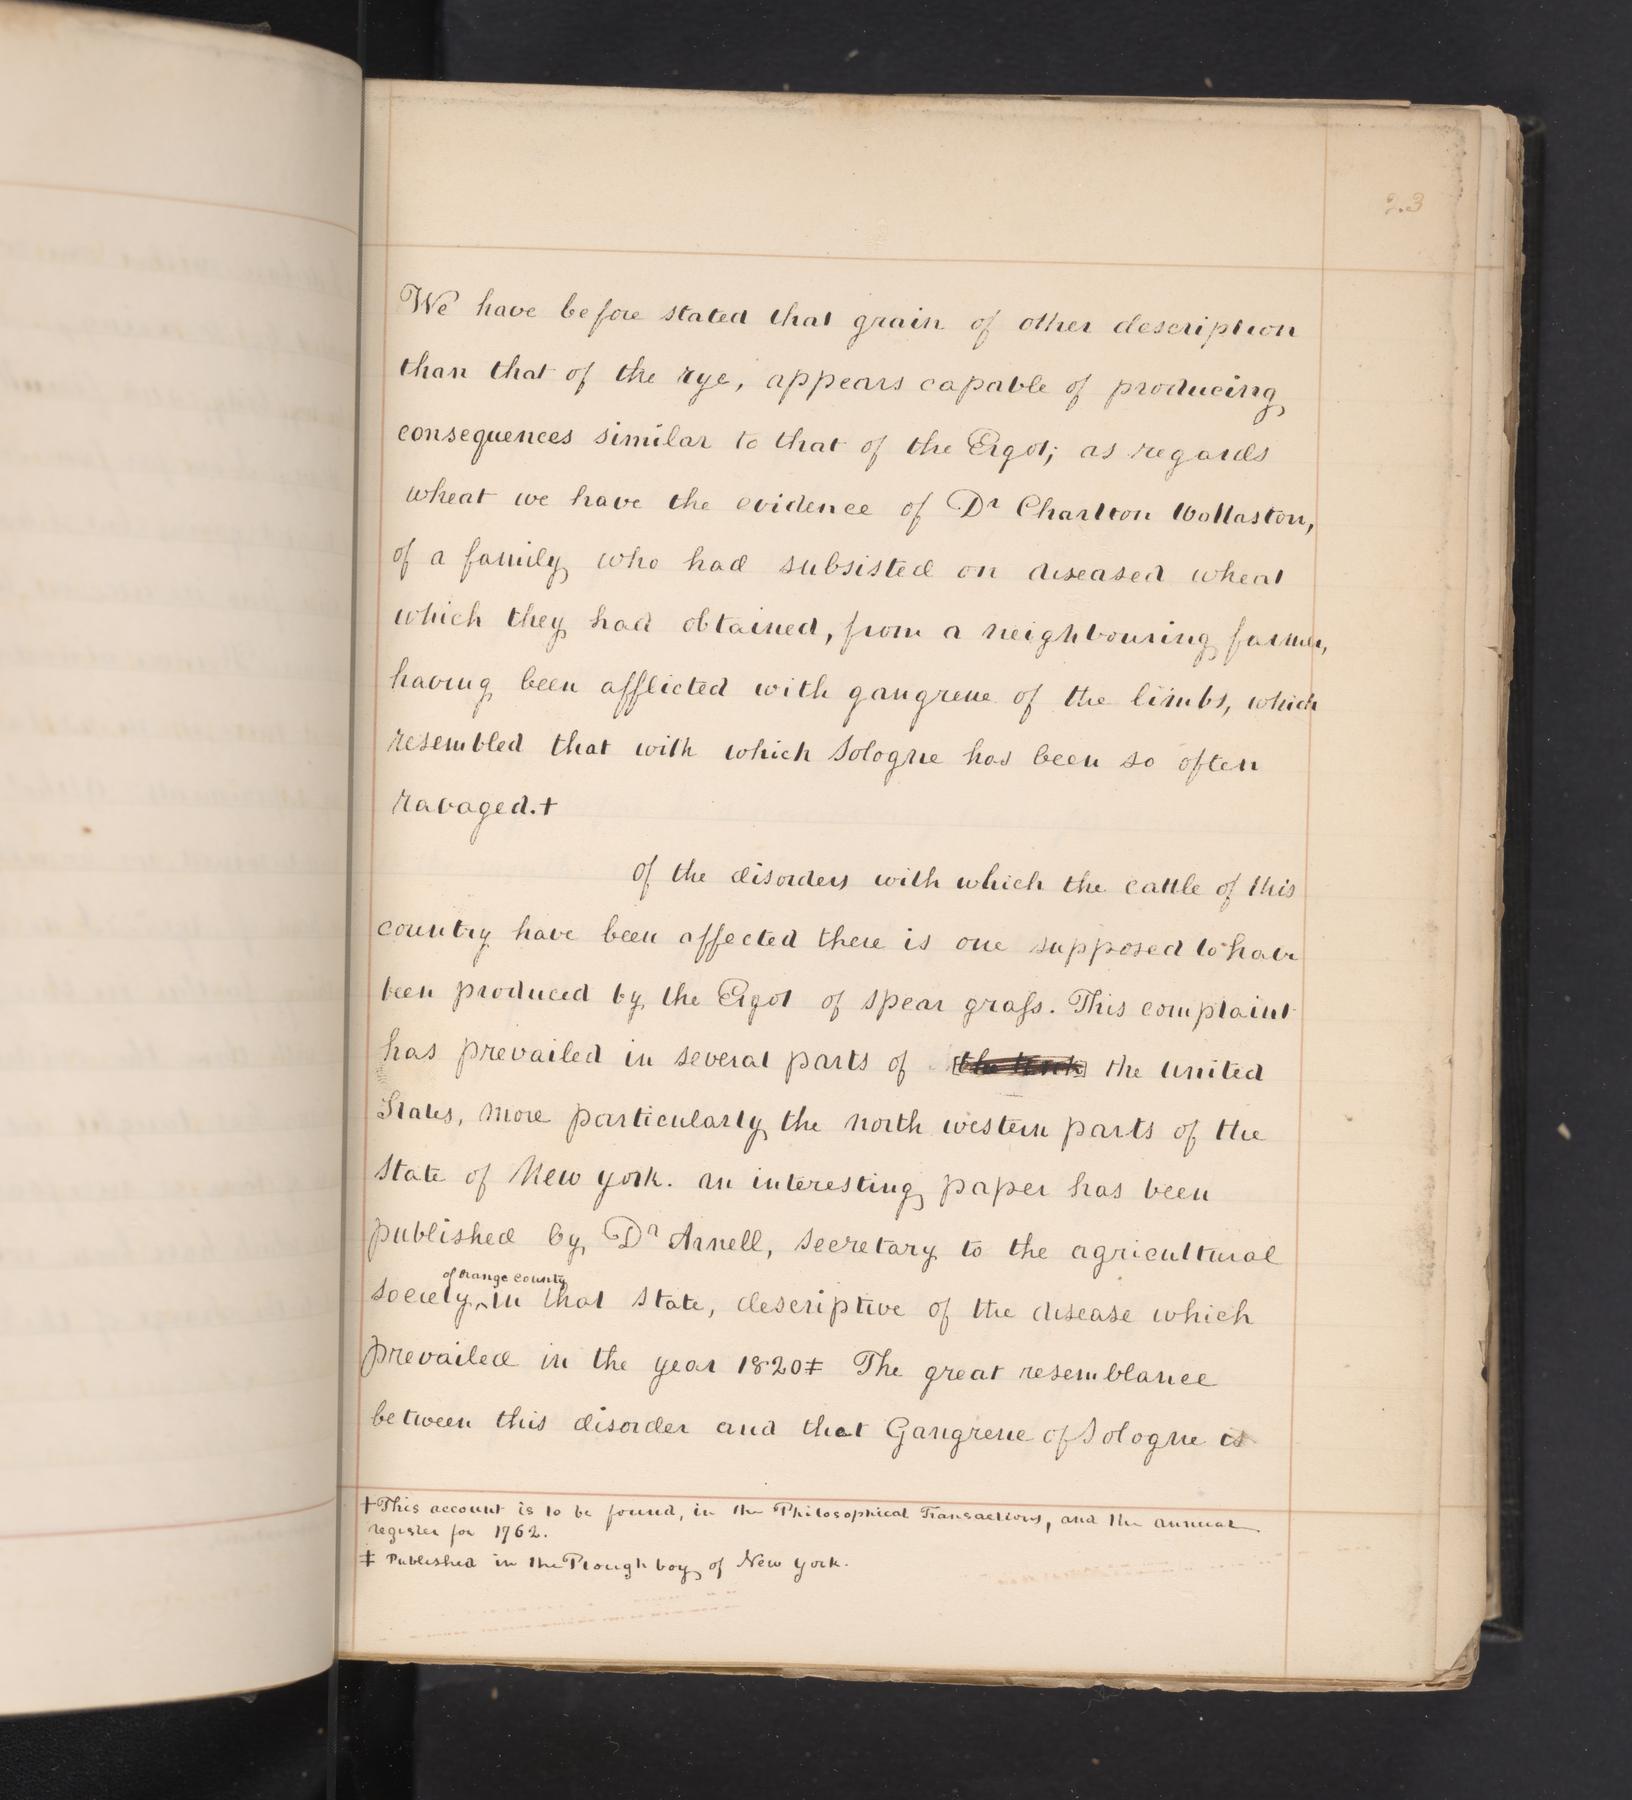 23
We have before stated that grain of other description
than that of the rye, appears capable of producing
consequences similar to that of the Ergot; as regards
wheat we have the evidence of Dr Charlton Wollaston,
of a family who had subsisted on diseased wheat
which they had obtained, from a neighbouring farmer,
having been afflicted with gangrene of the limbs, which
resembled that with which Sologne has been so often
ravaged.†
Of the disorders with which the cattle of this
country have been affected there is one supposed to have
been produced by the Ergot of spear grass. This complaint
has prevailed in several parts of the united
States, more particularly the north western parts of the
State of New york. an interesting paper has been
published by Dr Arnell, secretary to the agricultural
of orange county
society, in that State, descriptive of the disease which
prevailed in the year 1820‡ The great resemblance
between this disorder and that Gangrene of Sologne is
†This account is to be found, in the Philosophical Transactions, and the annual
register for 1762.
‡ Published in the Plough boy of New york.